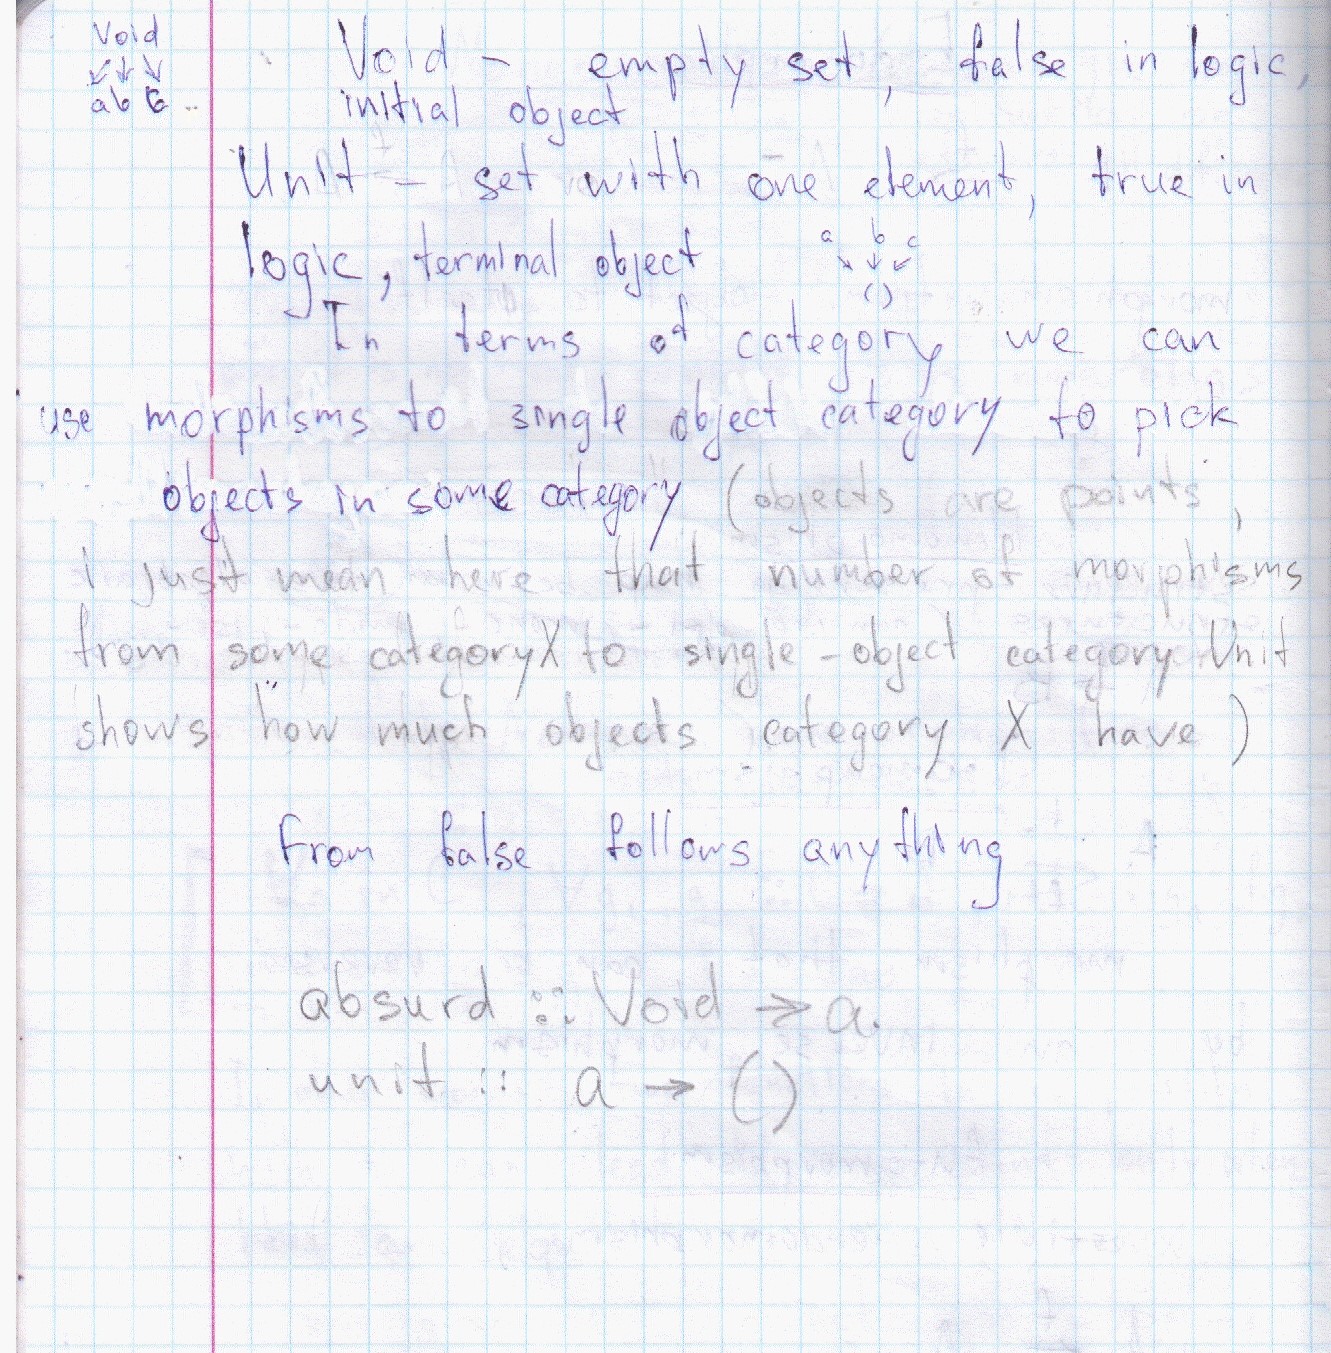 Void
a b c
Void - empty set, false in logic,
initial object
Unit - set with one element, true in
logic, terminal object
a b c
()
In terms of category we can
use morphisms to single object category to pick
objects in some category (objects are points,
i just mean here that number of morphisms
from some category X to single-object category Unit
shows how much objects category X have)
From false follows anything
absurd :: Void → a.
unit :: a → ()